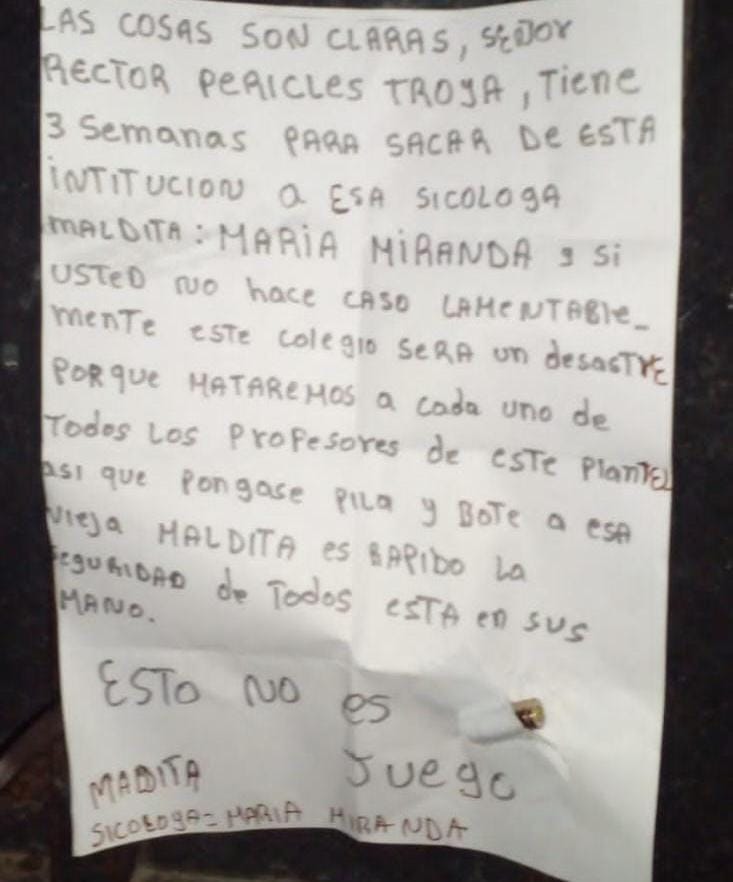 LAS COSAS SON CLARAS, SEÑOR
RECTOR PERICLES TROYA, TIENE
3 Semanas PARA SACAR De ESTA
INTITUCION a ESA SICOLOGA
MALDITA: MARIA MIRANDA y Si
USTED NO hace CASO LAMENTABLE_
MENTE ESTE COLEGIO SERA un desasTRE
PORque MATAREMOS a cada uno de
Todos Los Profesores de ESTE PlanTEL
asi que Pongase PILa y BOTE a esa
Vieja MALDITA es RAPIDO La
SEGURIDAD de Todos ESTA en sus
MANO.
ESTO NO es
Juego
MADITA
SICOLOGA= MARIA MIRANDA